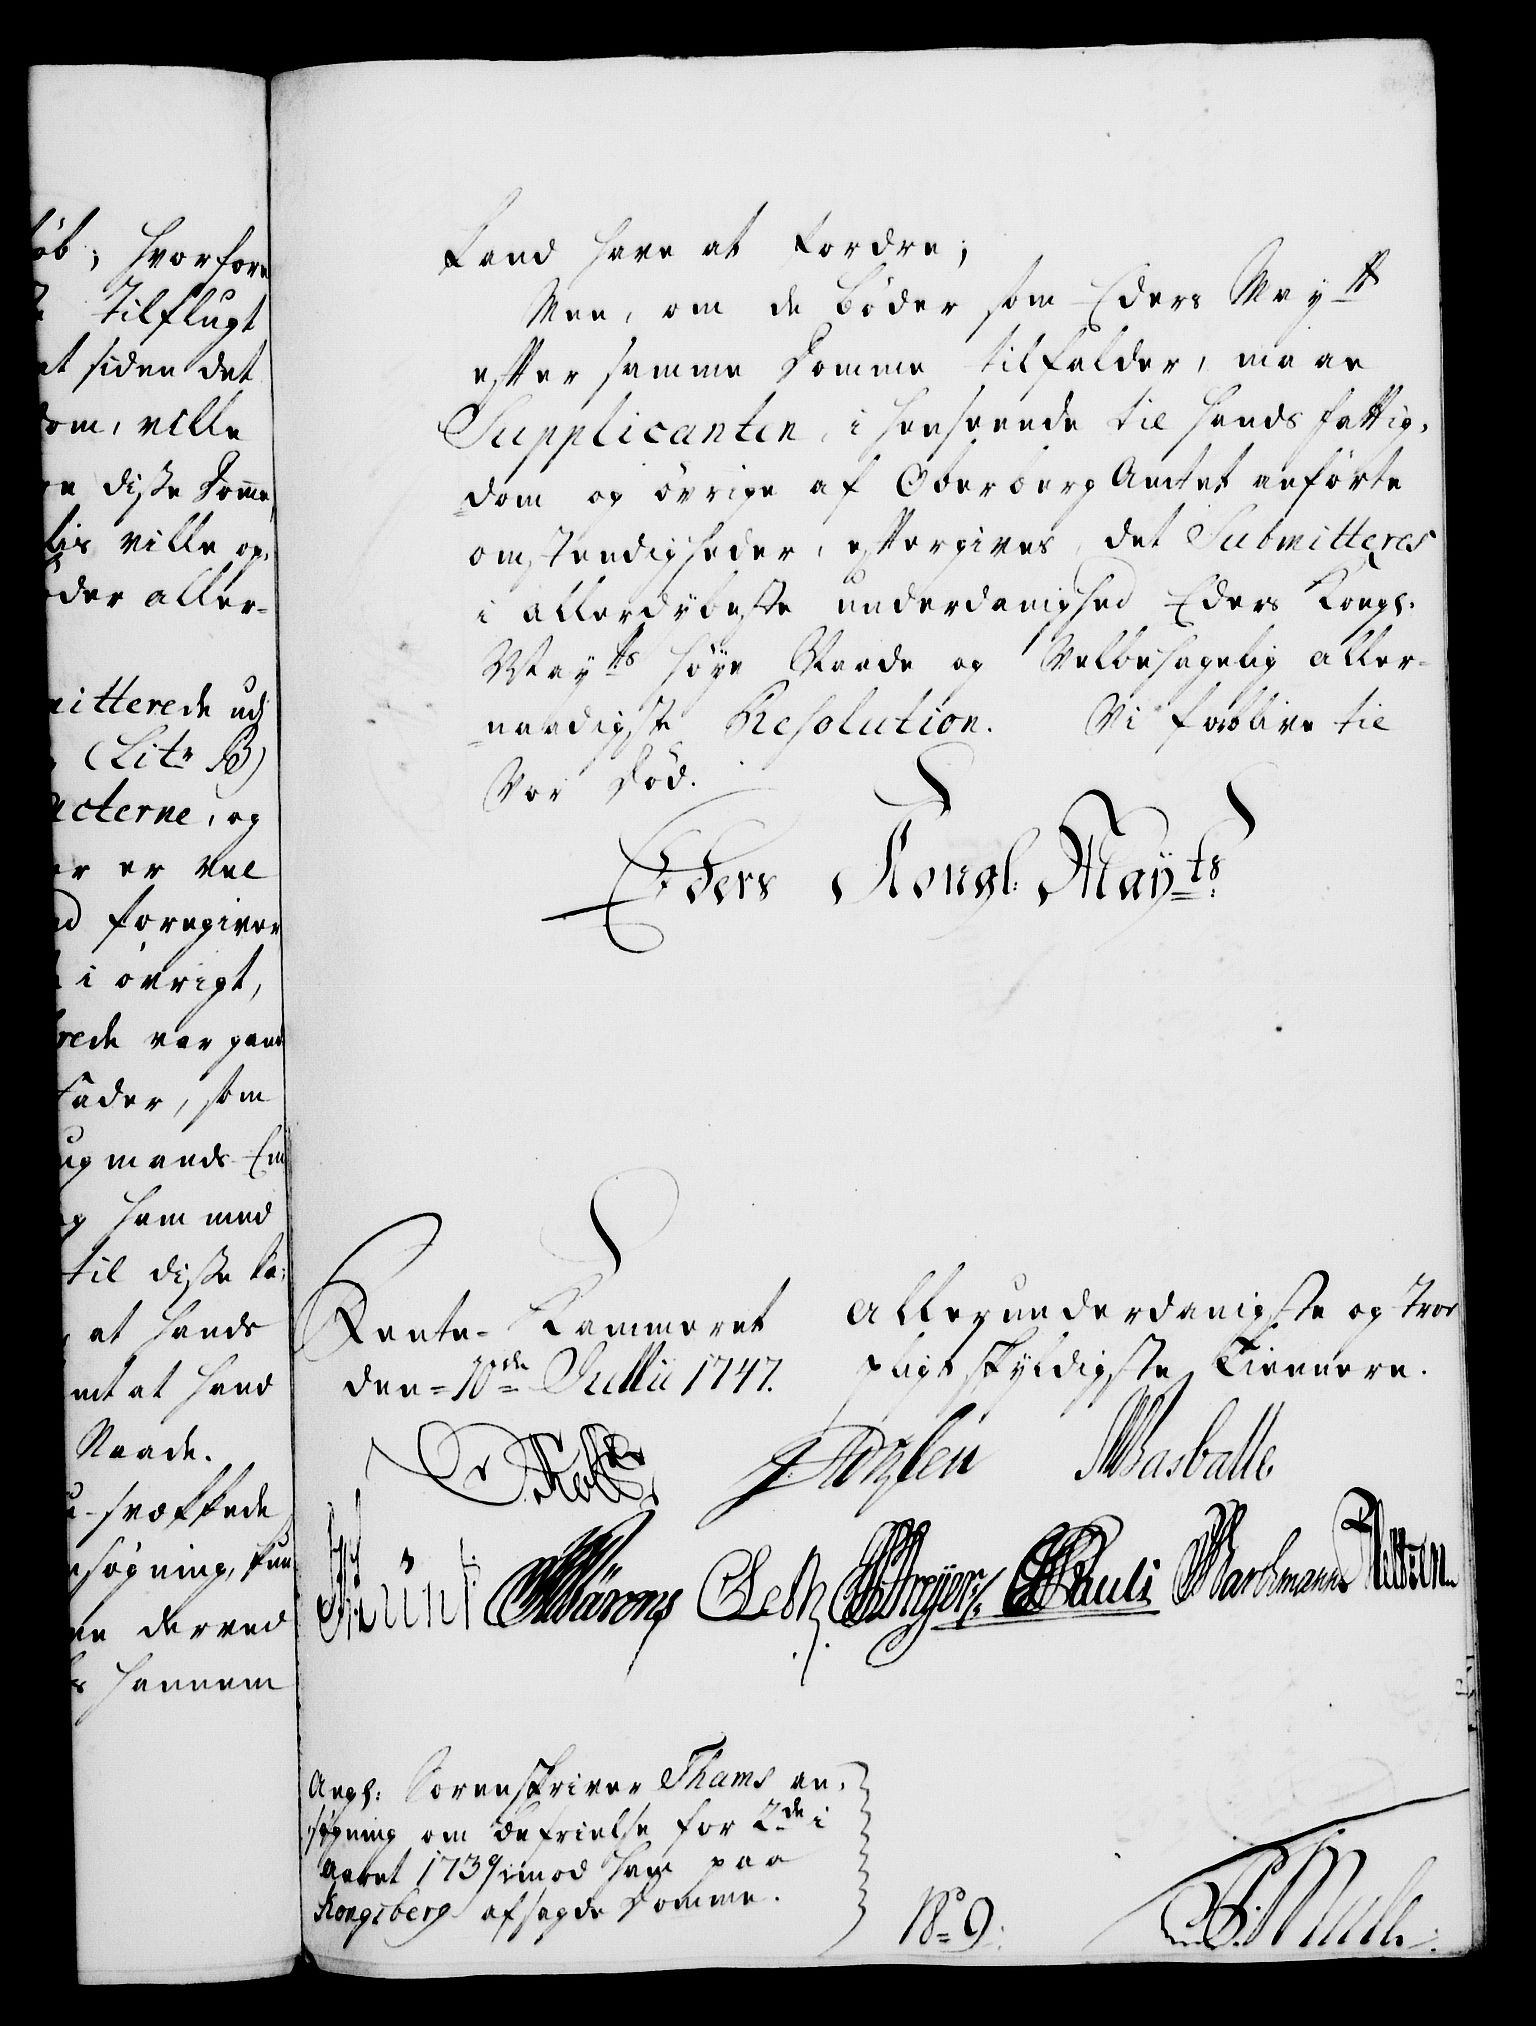 öb; hvorfore
Tilflugt
at siden det
dom, ville
disse Domme,
ville op-
der aller-
mitterede ud
(Litr B)
acterne, og
er vel
foregiver
i övrigt,
rede var gand
fader, som
ugmands
og ham med
til disse
at hands
at hand
Naade.
svækkede
sögning, kun
derved
hannem
kand have at fordre;
Men, om de Böder som Eders Maytt
efter samme Domme tilfalder, maae
Supplicanten, i henseende til hands fattig-
dom og övrige af Oberberg Amtet anförte
omstendigheder, eftergives, det Submitteres
i allerdybeste underdanighed Eders Kongl.
Mayts höye Naade og Velbehagelig aller-
naadigste Resolution. Vi forblive til
Vor Död.
Eders Kongl: Mayts
Rente-Kammeret
den 10de Julii 1747.
allerunderdanigste og troe
pligtskyldigste Tiennere.
Masballe
Pauli
Angl: Sorenskriver Thams an-
sögning om Befrielse for 2de i
Aaret 1739 imod ham paa
Kongsberg afsagde Domme.
No 9.